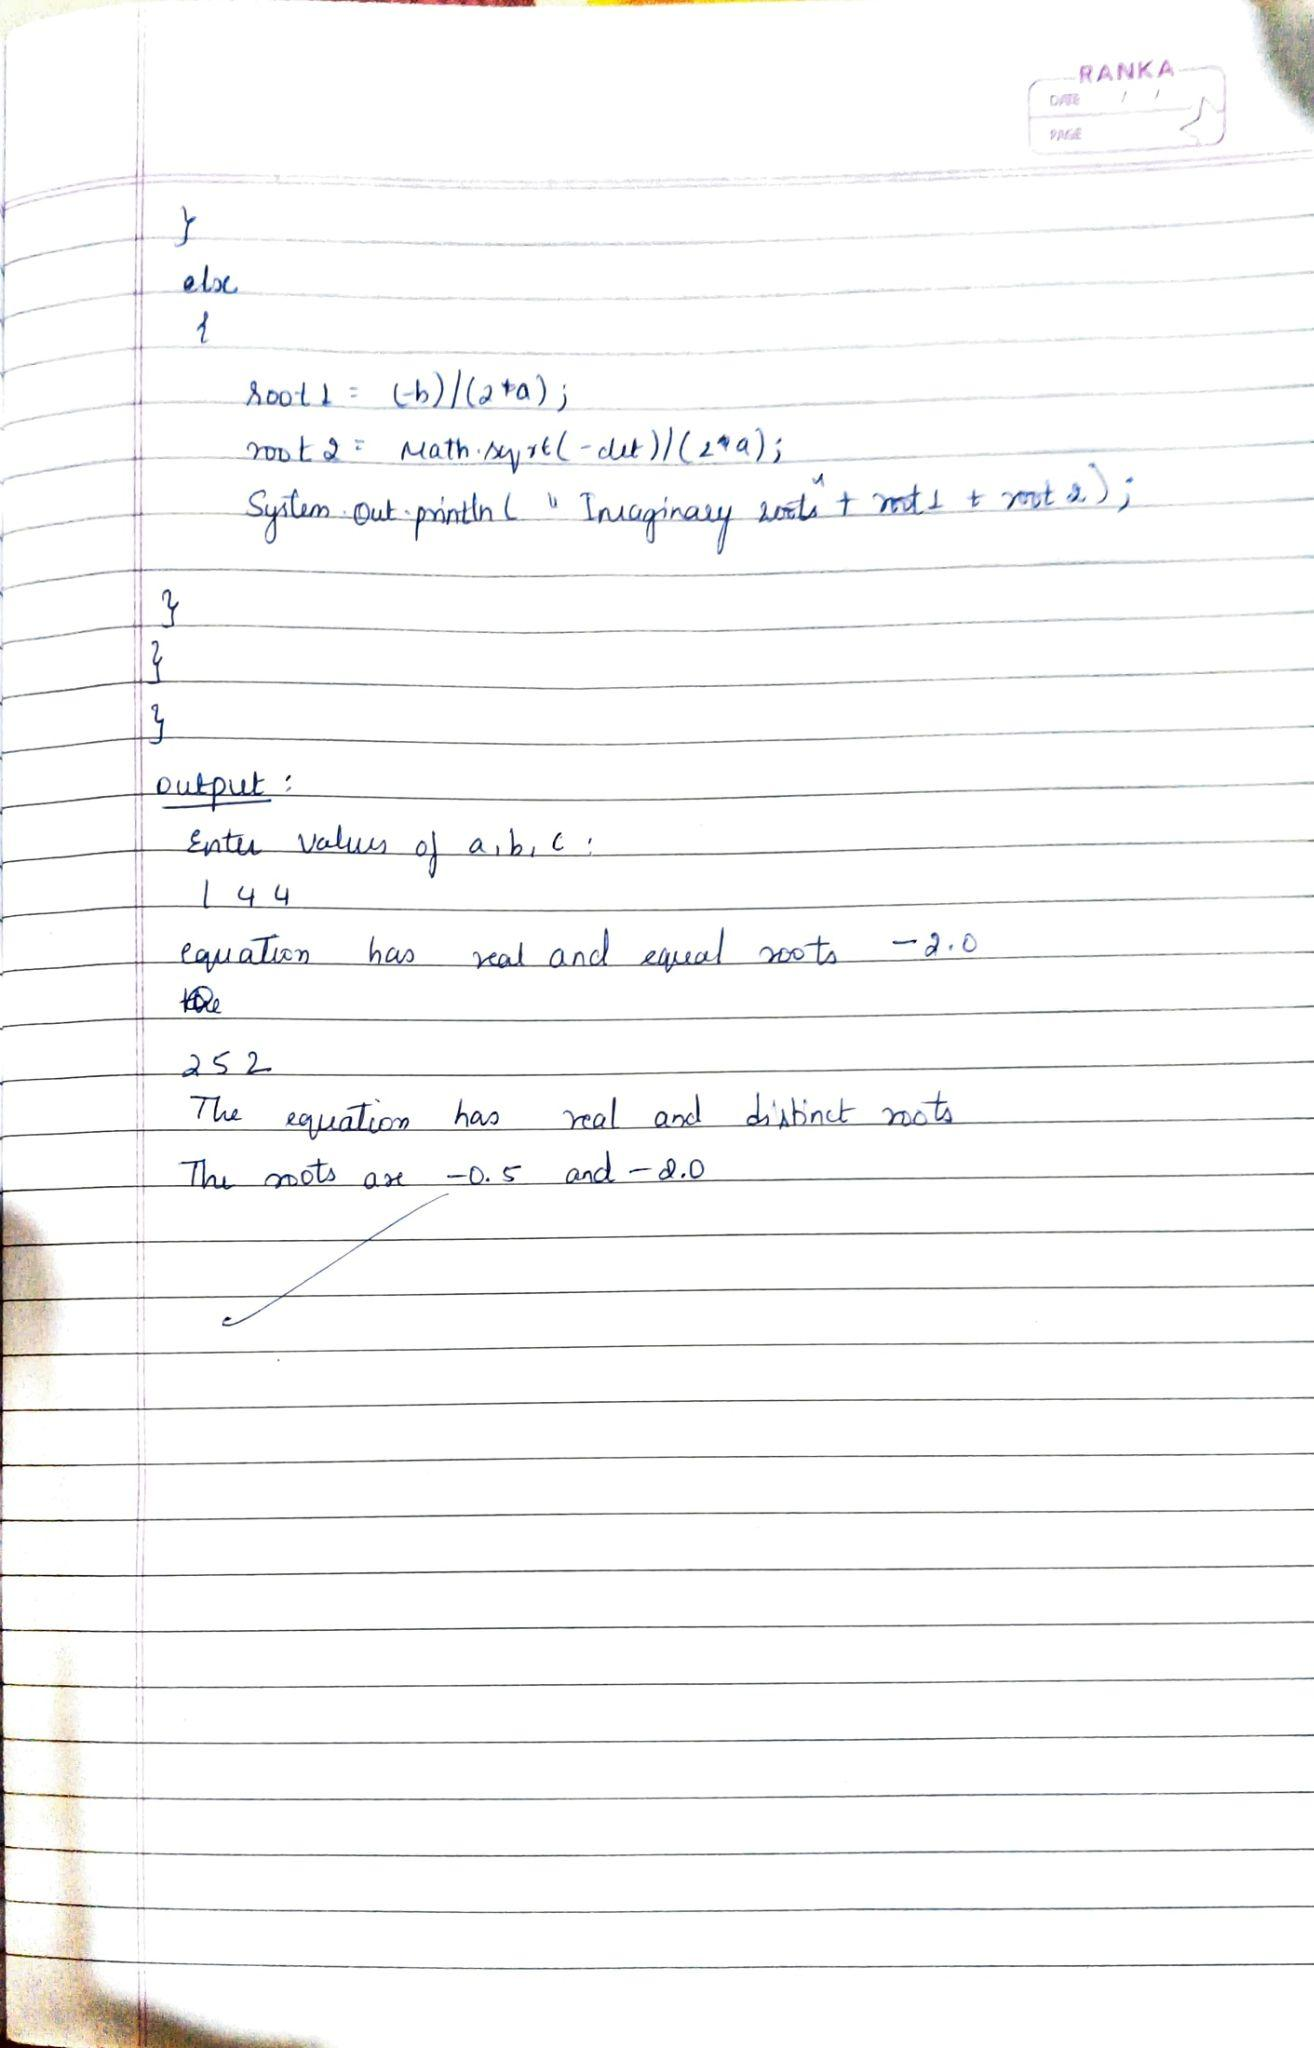 RANKA
DATE / /
PAGE
}
else
{
root1 = (-b)/(2*a);
root2 = Math.sqrt(-det)/(2*a);
System.out.println(" Imaginary roots" + root1 + root2);
}
}
}
output:
Enter values of a,b,c:
1 4 4
equation has real and equal roots -2.0
2 5 2
The equation has real and distinct roots
The roots are -0.5 and -2.0